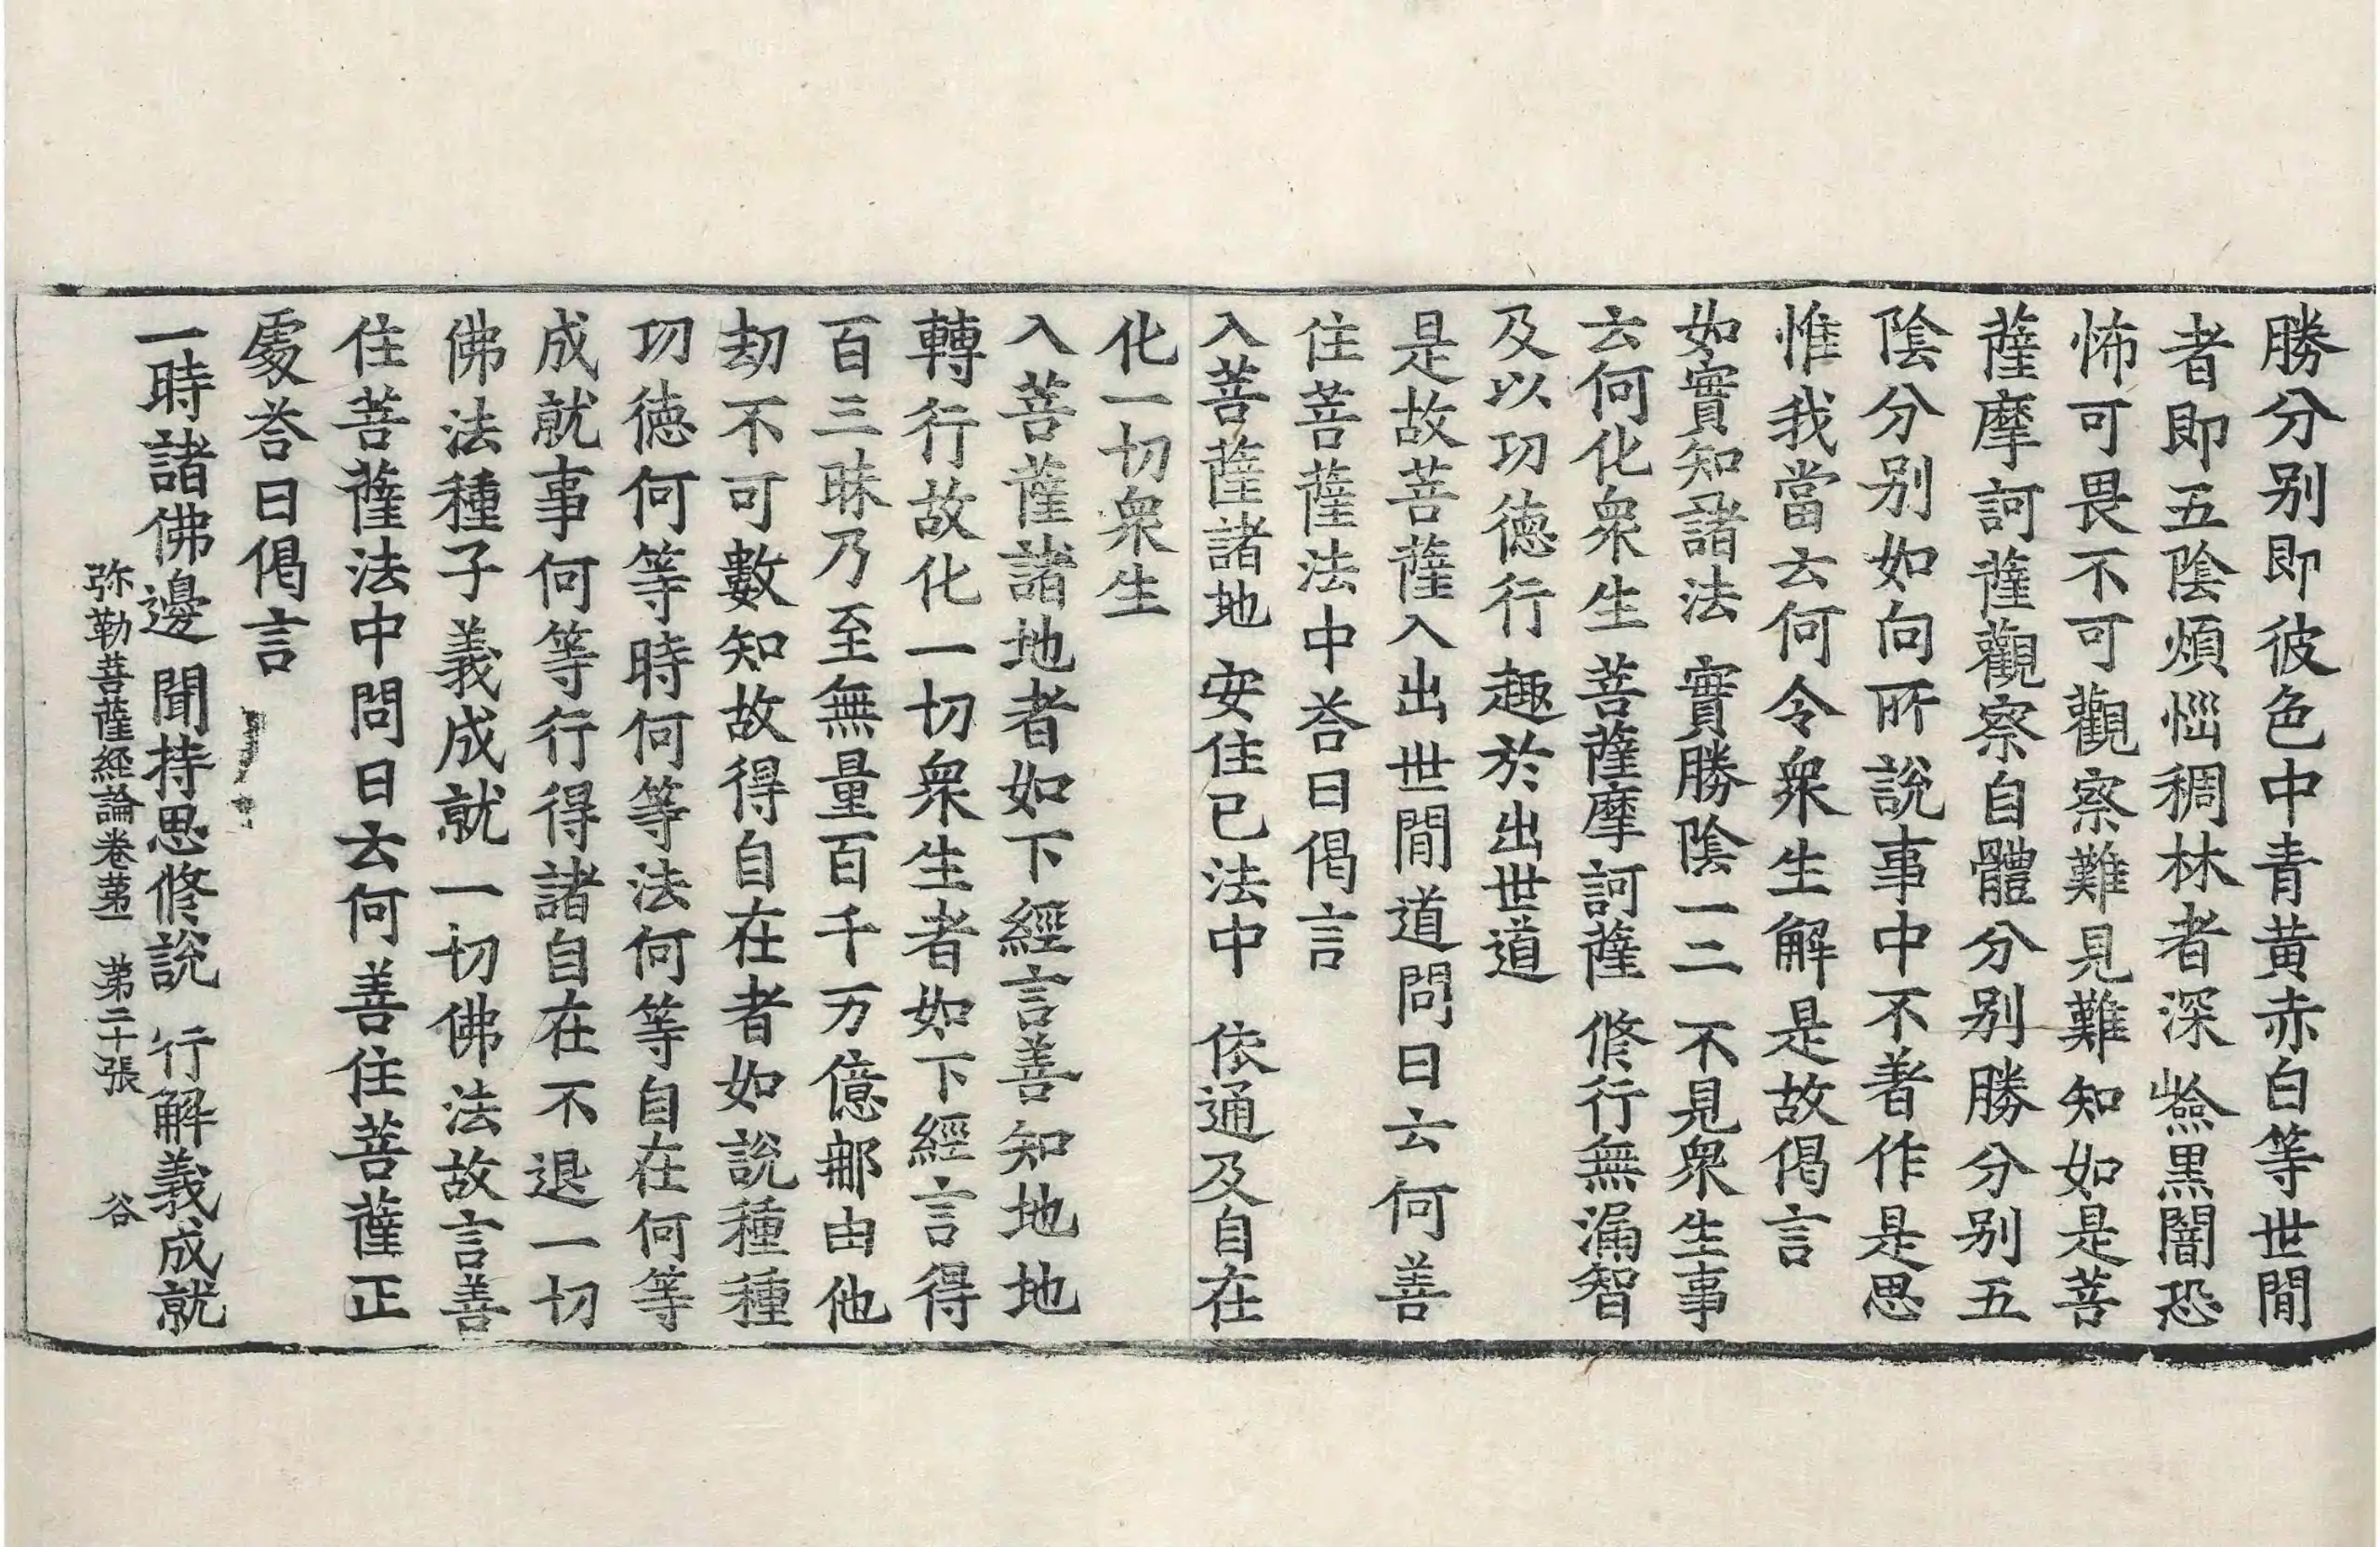 勝分别即彼色中青黄赤白等世間
者即五陰煩惱稠林者深嶮黒闇恐
怖可畏不可觀察難見難知如是菩
薩摩訶薩觀察自體分别勝分别五
陰分别如向所說事中不著作是思
惟我當云何令衆生解是故偈言
如實知諸法　實勝陰一二　不見衆生事
云何化衆生　菩薩摩訶薩　修行無漏智
及以功徳行　趣於出世道
是故菩薩入出世間道問曰云何善
住菩薩法中荅曰偈言
入菩薩諸地　安住已法中　依通及自在
化一切衆生
入菩薩諸地者如下經言善知地地
轉行故化一切衆生者如下經言得
百三昧乃至無量百千万億那由他
劫不可數知故得自在者如説種種
功徳何等時何等法何等自在何等
成就事何等行得諸自在不退一切
佛法種子義成就一切佛法故言善
住菩薩法中問曰云何善住菩薩正
處荅曰偈言
一時諸佛邊　聞持思修説　行解義成就
弥勒菩薩経論卷第一　第二十張　谷